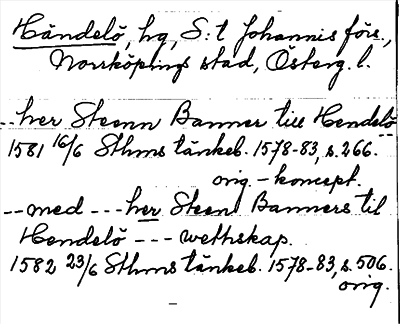 Händelö, hg, S:t Johannis förs.,
Norrköpings stad, Österg. l.
--her Steenn Banner till Hendelö--
1581 16/6 Sthms tänkeb. 1578-83, s. 266.
orig. - koncept.
--med --- her Steens Banners til
Hendelö --- wethskap.
1582 23/6 Sthms tänkeb. 1578-83, s. 506.
orig.